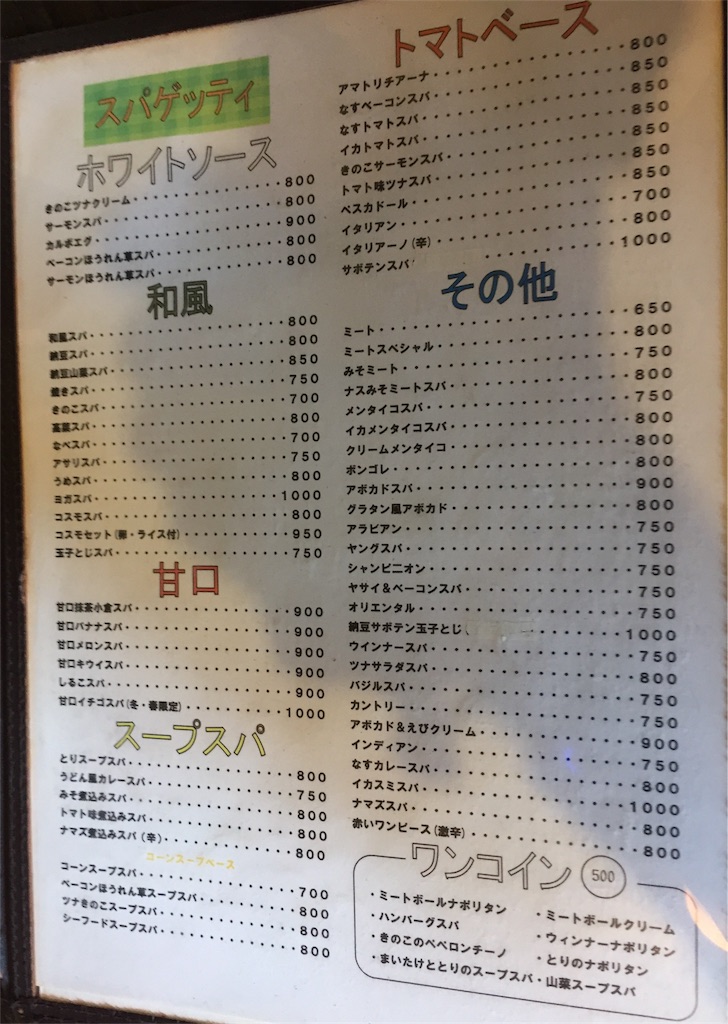 スパゲッティ
ホワイトソース
きのこツナクリーム・・・・・・・・・・・・800
サーモンスパ・・・・・・・・・・・・800
カルボエグ・・・・・・・・・・・・900
ベーコンほうれん草スパ・・・・・・・・・・・・800
サーモンほうれん草スパ・・・・・・・・・・・・800
和風
和風スパ・・・・・・・・・・・・800
納豆スパ・・・・・・・・・・・・800
納豆山菜スパ・・・・・・・・・・・・850
焼きスパ・・・・・・・・・・・・750
きのこスパ・・・・・・・・・・・・700
高菜スパ・・・・・・・・・・・・800
なべスパ・・・・・・・・・・・・700
アサリスパ・・・・・・・・・・・・750
うめスパ・・・・・・・・・・・・800
ミガスパ・・・・・・・・・・・・1000
コスモスパ・・・・・・・・・・・・800
コスモセット(卵・ライス付)・・・・・・・・・・・・950
玉子とじスパ・・・・・・・・・・・・750
甘口
甘口抹茶小倉スパ・・・・・・・・・・・・900
甘口バナナスパ・・・・・・・・・・・・900
甘口メロンスパ・・・・・・・・・・・・900
甘口キウイスパ・・・・・・・・・・・・900
しるこスパ・・・・・・・・・・・・900
甘口イチゴスパ(冬・春限定)・・・・・・・・・・・・1000
スープスパ
とりスープスパ・・・・・・・・・・・・800
うどん風カレースパ・・・・・・・・・・・・750
みそ煮込みスパ・・・・・・・・・・・・800
トマト味煮込みスパ・・・・・・・・・・・・800
ナマズ煮込みスパ(辛)・・・・・・・・・・・・800
コーンスープベース
コーンスープスパ・・・・・・・・・・・・700
ベーコンほうれん草スープスパ・・・・・・・・・・・・800
ツナきのこスープスパ・・・・・・・・・・・・800
シーフードスープスパ・・・・・・・・・・・・800
トマトベース
アマトリチアーナ・・・・・・・・・・・・800
なすベーコンスパ・・・・・・・・・・・・850
なすトマトスパ・・・・・・・・・・・・850
イカトマトスパ・・・・・・・・・・・・850
きのこサーモンスパ・・・・・・・・・・・・850
トマト味ツナスパ・・・・・・・・・・・・850
ペスカドール・・・・・・・・・・・・850
イタリアン・・・・・・・・・・・・700
イタリアーノ(辛)・・・・・・・・・・・・800
サボテンスパ・・・・・・・・・・・・1000
その他
ミート・・・・・・・・・・・・650
ミートスペシャル・・・・・・・・・・・・800
みそミート・・・・・・・・・・・・750
ナスみそミートスパ・・・・・・・・・・・・800
メンタイコスパ・・・・・・・・・・・・750
イカメンタイコスパ・・・・・・・・・・・・800
クリームメンタイコ・・・・・・・・・・・・800
ボンゴレ・・・・・・・・・・・・800
アボカドスパ・・・・・・・・・・・・900
グラタン風アボカド・・・・・・・・・・・・800
アラビアン・・・・・・・・・・・・750
ヤングスパ・・・・・・・・・・・・750
シャンピニオン・・・・・・・・・・・・750
ヤサイ&ベーコンスパ・・・・・・・・・・・・750
オリエンタル・・・・・・・・・・・・750
納豆サボテン玉子とじ・・・・・・・・・・・・1000
ウインナースパ・・・・・・・・・・・・750
ツナサラダスパ・・・・・・・・・・・・800
バジルスパ・・・・・・・・・・・・750
カントリー・・・・・・・・・・・・750
アボカド&えびクリーム・・・・・・・・・・・・900
インディアン・・・・・・・・・・・・750
なすカレースパ・・・・・・・・・・・・800
イカスミスパ・・・・・・・・・・・・1000
ナマズスパ・・・・・・・・・・・・800
赤いワンピース(激辛)・・・・・・・・・・・・800
ワンコイン 500
・ミートボールナポリタン ・ミートボールクリーム
・ハンバーグスパ ・ウィンナーナポリタン
・きのこのペペロンチーノ ・とりのナポリタン
・まいたけととりのスープスパ・山菜スープスパ